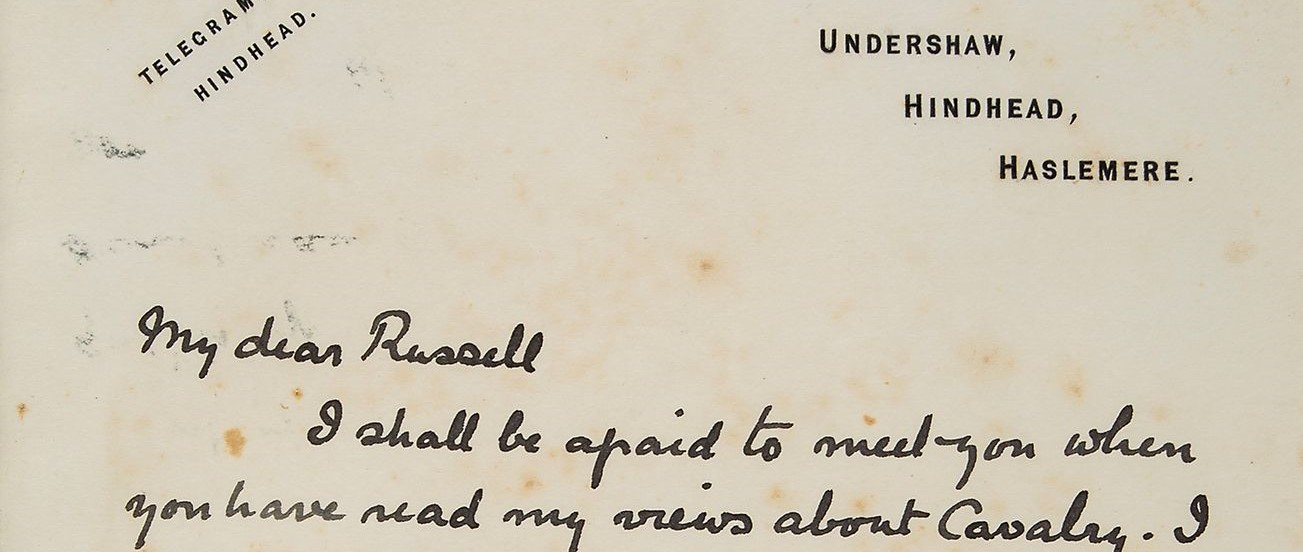 TELEGRAM
HINDHEAD.
UNDERSHAW,
HINDHEAD,
HASLEMERE.
My dear Russell
I shall be afraid to meet you when
you have read my views about Cavalry. I